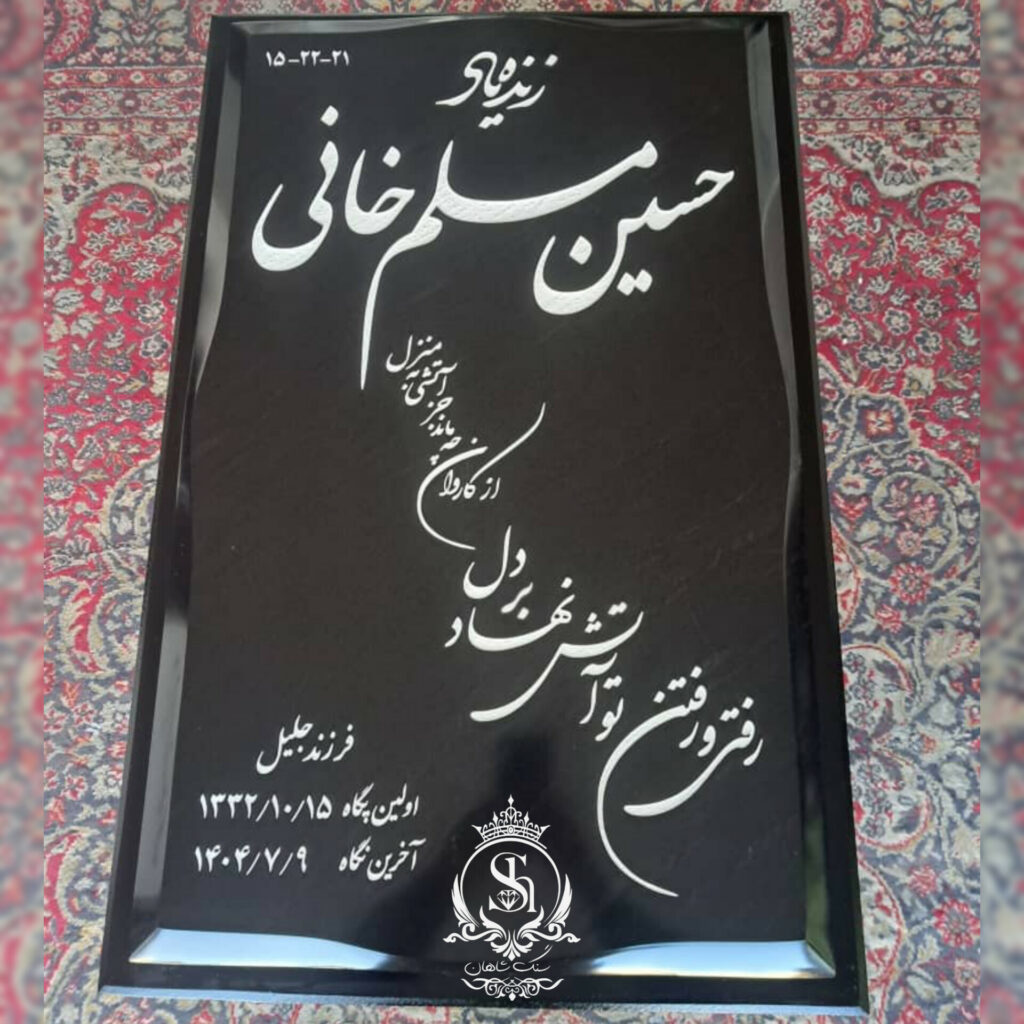 ۱۵-۲۲-۲۱
زنده یاد
حسین مسلم خانی
از کاروان چه ماند جز آتشی به منزل
رفتی و رفتن تو آتش نهاد بر دل
فرزند جلیل
اولین پگاه ۱۳۳۲/۱۰/۱۵
آخرین نگاه ۱۴۰۴/۷/۹
Sh
سنگ شاهان